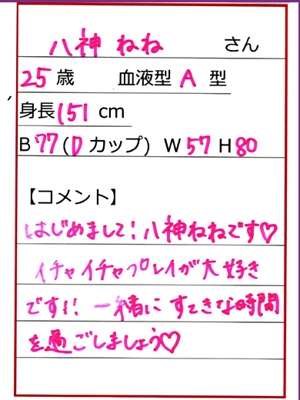 八神 ねね さん
25歳 血液型 A 型
身長 151 cm
B 77(D カップ) W 57 H 80
【コメント】
はじめまして！八神ねねです♡
イチャイチャプレイが大好き
です！！一緒にすてきな時間
を過ごしましょう♡